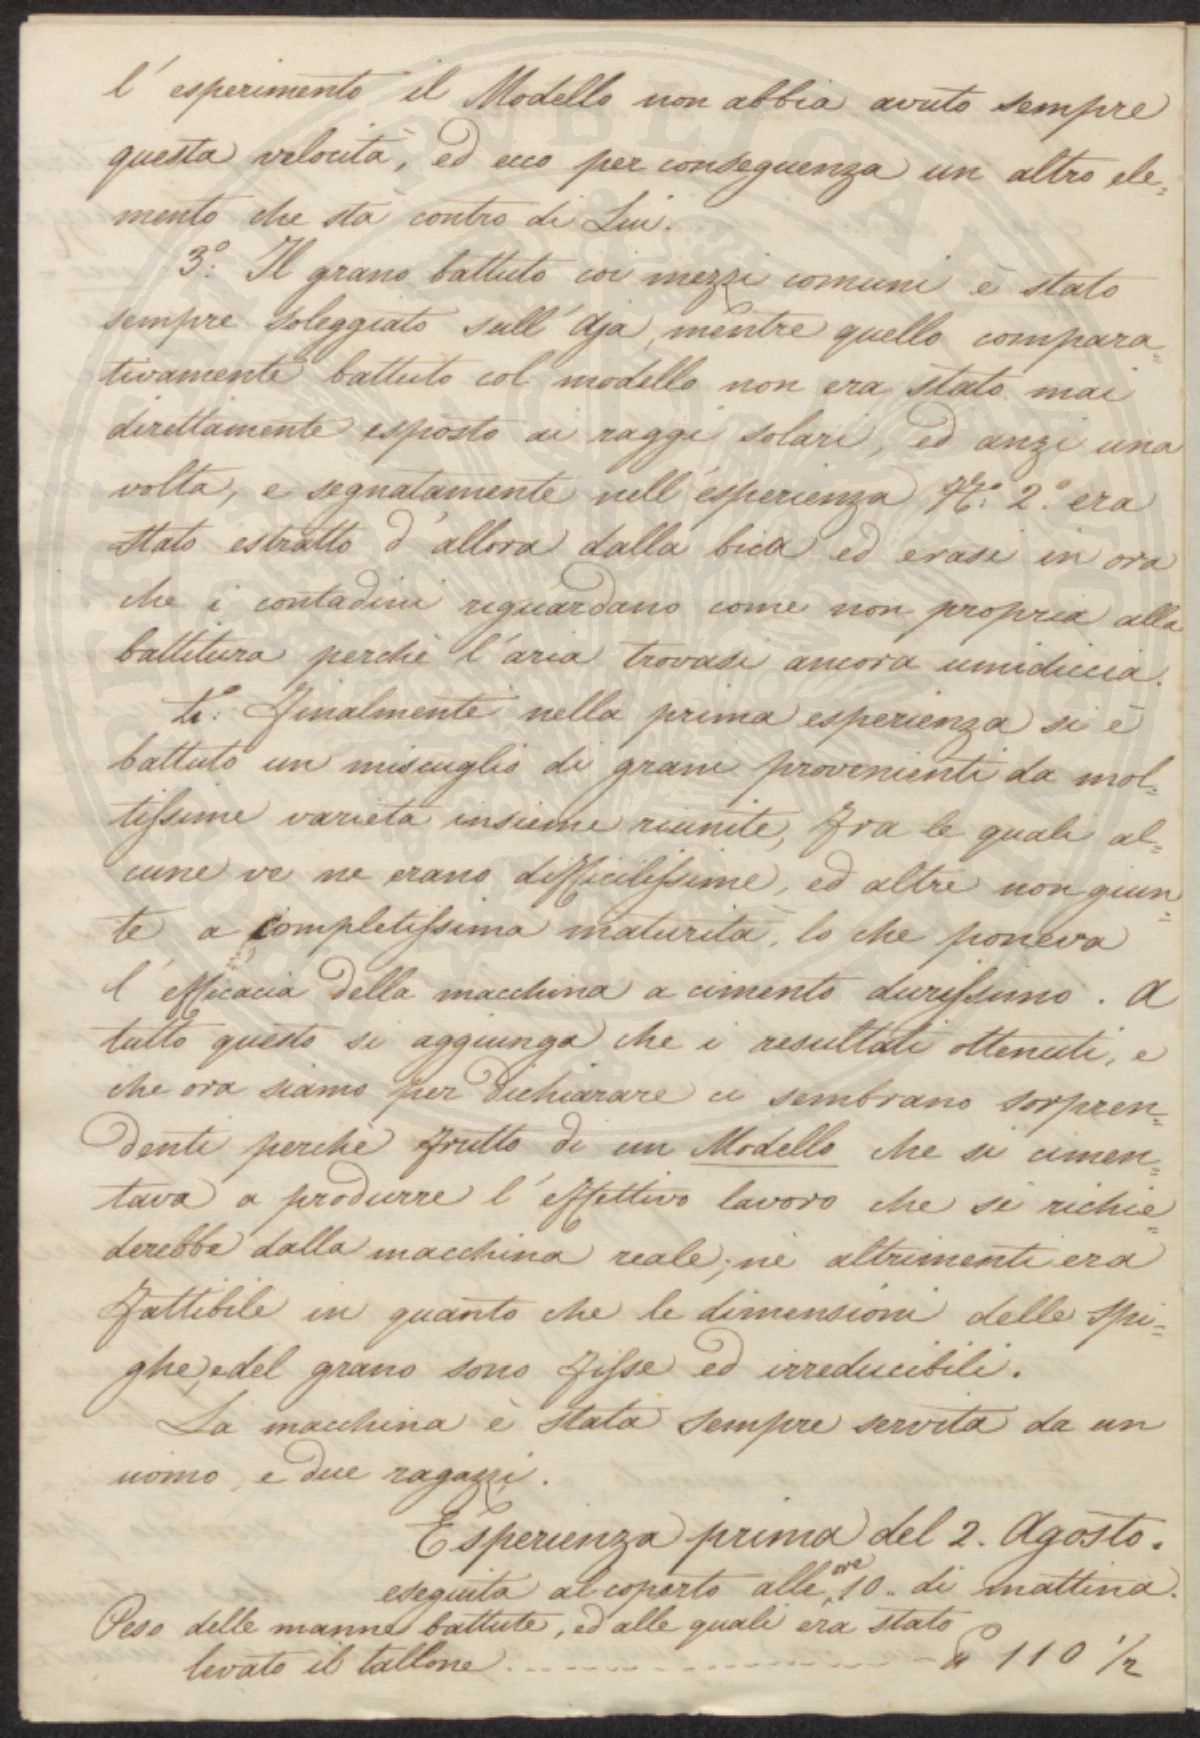 l' esperimento il Modello non abbia avuto sempre
questa velocità, ed ecco per conseguenza un altro ele=
mento che stà contro di Lui.
3.° Il grano battuto coi mezzi comuni è stato
sempre soleggiato sull' Aja, mentre quello compara=
tivamente battuto col modello non era stato mai
direttamente esposto ai raggi solari, ed anzi una
volta, e segnatamente nell' esperienza N.° 2.° era
stato estratto d' allora dalla bica ed erasi in ora
che i contadini riguardano come non propria alla
battitura perchè l' aria trovasi ancora umidiccia.
4.° Finalmente nella prima esperienza si è
battuto un miscuglio di grani provenienti da mol=
tissime varietà insieme riunite, fra le quali al=
cune ve ne erano difficilissime, ed altre non giun=
te a completissima maturità, lo che poneva
l' efficacia della macchina a cimento durissimo. A
tutto questo si aggiunga che i resultati ottenuti, e
che ora siamo per dichiarare ci sembrano sorpren=
denti perchè frutto di un Modello che si cimen=
tava a produrre l' effettivo lavoro che si richie=
derebbe dalla macchina reale; nè altrimenti era
fattibile in quanto che le dimensioni delle spi=
ghe, e del grano sono fisse ed irreducibili.
La macchina è stata sempre servita da un
uomo, e due ragazzi.
Esperienza prima del 2. Agosto.
eseguita al coperto alle ore 10.. di mattina.
Peso delle manne battute, ed alle quali era stato
levato il tallone 110 1/2